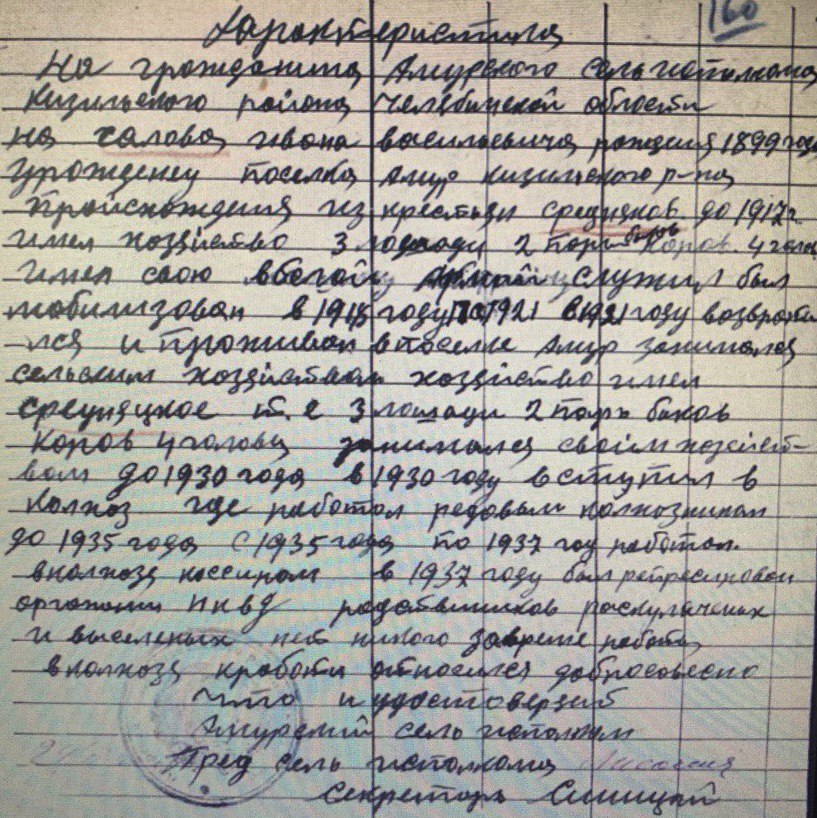 160
Характеристика
На гражданина Амурского сельисполкома
Кизильского района Челябинской области
на Чалова ивана васильевича рождения 1899 года
урожденец поселка Амур кизильского р-на
Происхождения из крестьян средняков до 1917 г
имел хозяйство 3 лошади 2 пары быков Коров. 4 голов
имел свою в белой армии служил был
мобилизован в 1918 году по 1921 в 1921 году возврати
лся и проживал в поселке Амур занимался
сельским хозяйством хозяйство имел
средняцкое т.е 3 лошади 2 пары быков
Коров 4 головы занимался своим хозяйст-
вом до 1930 года в 1930 году вступил в
колхоз где работал редовым колхозником
до 1935 года с 1935 года по 1937 год работал.
в колхозя кассиром в 1937 году был репресирован
органами НКВД родствиников раскулачених
и выселеных нет никого за время работы
в колхозя к работи относился добросовесно
что и удостоверяит
Амурский сельисполком
Пред сельисполкома
Секретарь